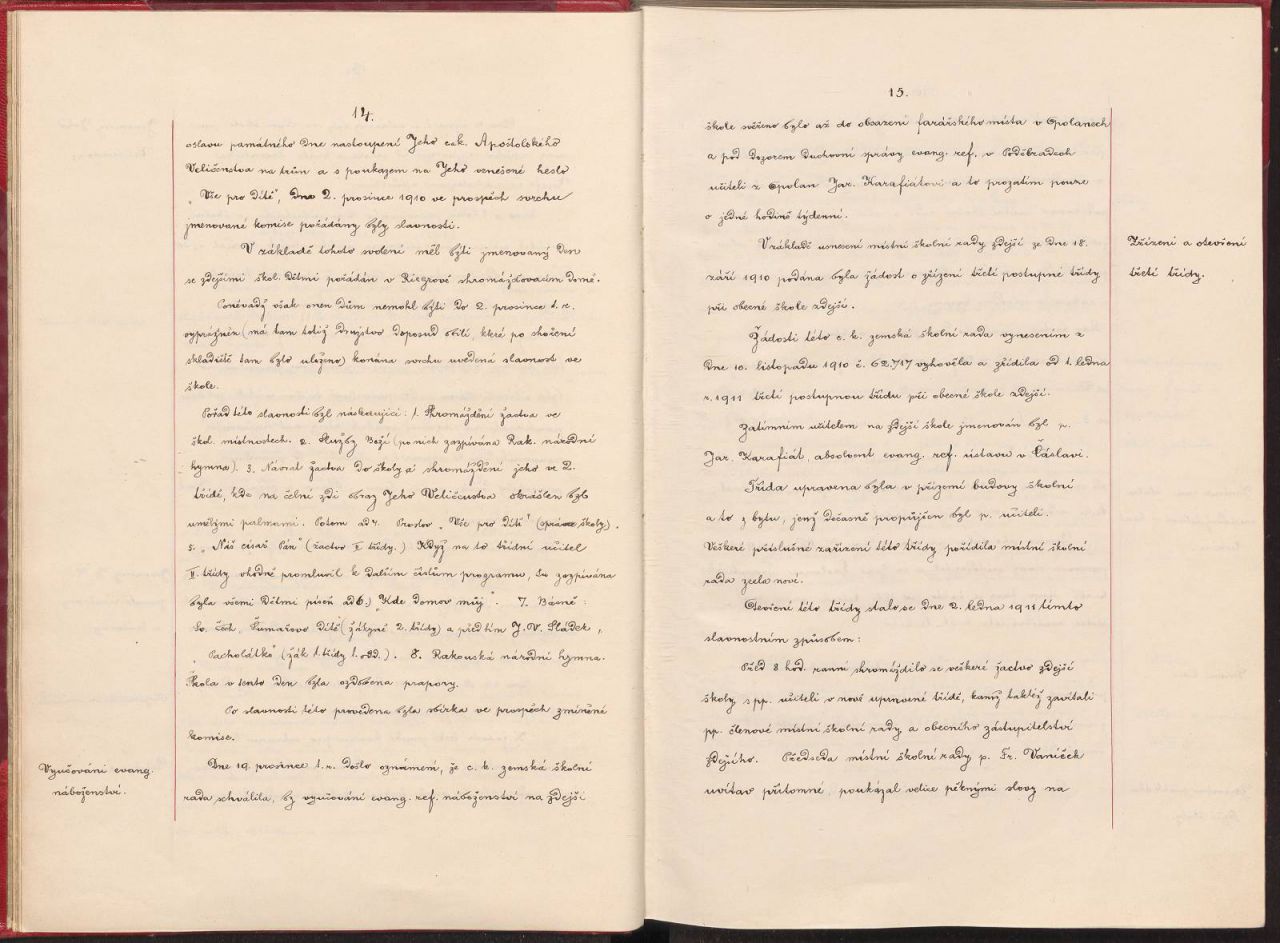 14.
oslavu památného dne nastoupení Jeho cis. Apoštolského
Veličenstva na trůn a s poukazem na Jeho vznešené heslo
„Vše pro dítě“, dne 2. prosince 1910 ve prospěch svrchu
jmenované komise pořádány byly slavnosti.
V základě tohoto svolení měl býti jmenovaný den
se zdejšími škol. dětmi pořádán v Riegrově shromažďovacím domě.
Poněvadž však onen dům nemohl býti do 2. prosince t. r.
vyprázněn (má tam totiž družstvo doposud obilí, které po shoření
skladiště tam bylo uloženo) konána svrchu uvedená slavnost ve
škole.
Pořad této slavnosti byl následující: 1. Shromáždění žactva ve
škol. místnostech. 2. Služby Boží (po nich zazpívána Rak. národní
hymna). 3. Návrat žactva do školy a shromáždění jeho ve 2.
třídě, kde na čelní zdi obraz Jeho Veličenstva okrášlen byl
umělými palmami. Potom ad 4. Proslov „Vše pro dítě“ (správce školy).
5. „Náš císař Pán“ (žactvo II třídy.) Když na to třídní učitel
II. třídy vhodně promluvil k dalším číslům programu, zazpívána
byla všemi dětmi píseň ad 6.) Kde domov můj“. 7. Básně:
Sv. Čech „Šumařovo dítě“ (žákyně 2. třídy) a předtím J. V. Sládek „
„Pacholátko“ (žák 1. třídy 1. odd.). 8. Rakouská národní hymna.
Škola v tento den byla ozdobena prapory.
Po slavnosti této provedena byla sbírka ve prospěch zmíněné
komise.
Vyučování evang.
náboženství.
Dne 19. prosince t. r. došlo oznámení, že c. k. zemská školní
rada schválila, by vyučování evang. ref. náboženství na zdejší
15.
škole svěřeno bylo až do obsazení farářského místa v Opolanech
a pod dozorem duchovní správy evang. ref. v Poděbradech
učiteli z Opolan Jar. Karafiátovi a to prozatím pouze
o jedné hodině týdenní.
Zřízení a otevření
třetí třídy.
V základě usnesení místní školní rady zdejší ze dne 18.
září 1910 podána byla žádost o zřízení třetí postupné třídy
při obecné škole zdejší.
Žádosti této c. k. zemská školní rada vynesením z
dne 10. listopadu 1910 č. 62.717 vyhověla a zřídila od 1. ledna
r. 1911 třetí postupnou třídu při obecné škole zdejší.
Zatímním učitelem na zdejší škole jmenován byl p.
Jar. Karafiát, absolvent evang. ref. ústavu v Čáslavi.
Třída upravena byla v přízemí budovy školní
a to z bytu, jenž dočasně propůjčen byl p. učiteli.
Veškeré příslušné zařízení této třídy pořídila místní školní
rada zcela nové.
Otevření této třídy stalo se dne 2. ledna 1911 tímto
slavnostním způsobem:
Před 8 hod. ranní shromáždilo se veškeré žactvo zdejší
školy s pp. učiteli v nově upravené třídě, kamž taktéž zavítali
pp. členové místní školní rady a obecního zástupitelství
zdejšího. Předseda místní školní rady p. Fr. Vaníček
uvítav přítomné, poukázal velice pěknými slovy na